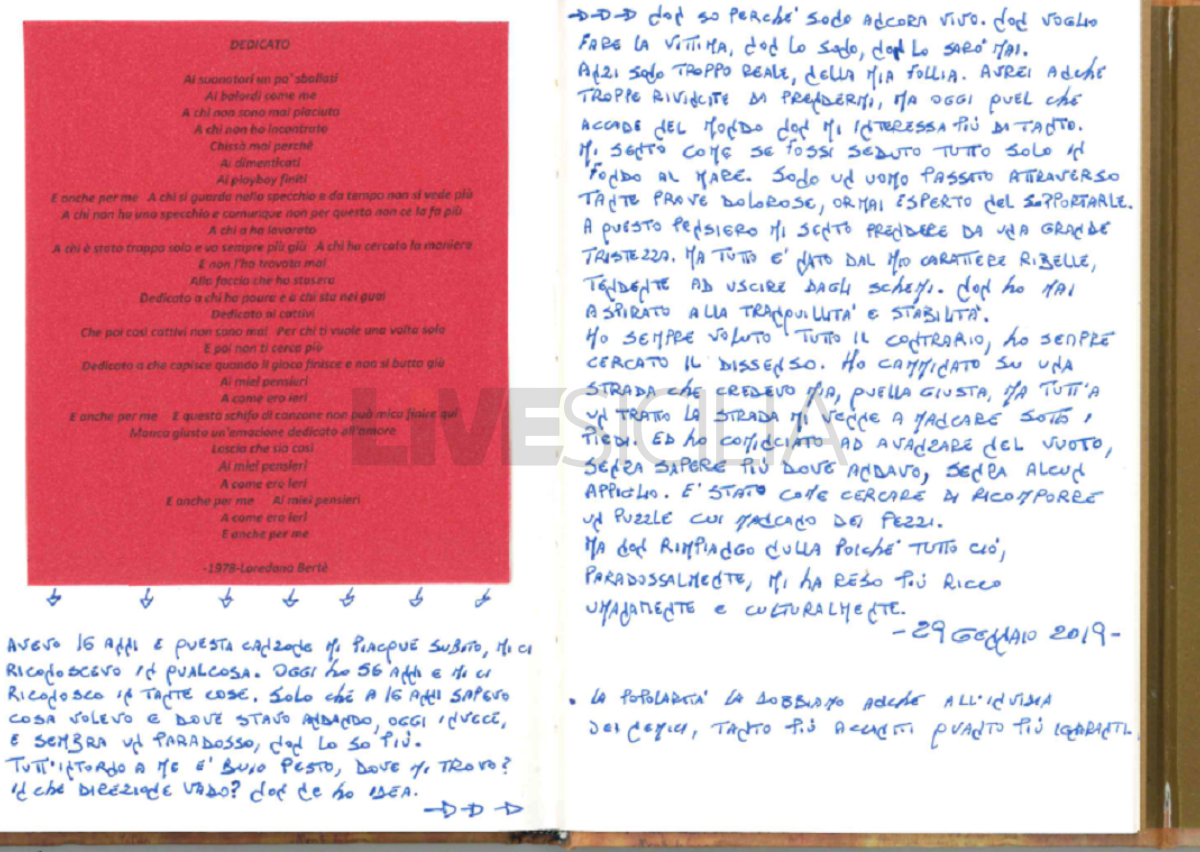 DEDICATO
Ai suonatori un po' sballati
Ai balordi come me
A chi non sono mai piaciuta
A chi non ho incontrato
Chissà mai perché
Ai dimenticati
Ai playboy finiti
E anche per me   A chi si guarda nello specchio e da tempo non si vede più
A chi non ha uno specchio e comunque non per questo non ce la fa più
A chi a ha lavorato
A chi è stato troppo solo e va sempre più giù   A chi ha cercato la maniera
E non l'ha trovata mai
Alla faccia che ha stasera
Dedicato a chi ha paura e a chi sta nei guai
Dedicato ai cattivi
Che poi così cattivi non sono mai   Per chi ti vuole una volta sola
E poi non ti cerca più
Dedicato a che capisce quando il gioco finisce e non si butta giù
Ai miei pensieri
A come ero ieri
E anche per me   E questo schifo di canzone non può mica finire qui
Manca giusto un'emozione dedicato all'amore
Lascia che sia così
Ai miei pensieri
A come ero ieri
E anche per me   Ai miei pensieri
A come ero ieri
E anche per me
-1978-Loredana Bertè
AVEVO 16 ANNI E QUESTA CANZONE MI PIACQUE SUBITO, MI CI
RICONOSCEVO IN QUALCOSA. OGGI HO 56 ANNI E MI CI
RICONOSCO IN TANTE COSE. SOLO CHE A 16 ANNI SAPEVO
COSA VOLEVO E DOVE STAVO ANDANDO, OGGI INVECE,
E SEMBRA UN PARADOSSO, NON LO SO PIÙ.
TUTT'INTORNO A ME E' BUIO PESTO, DOVE MI TROVO?
IN CHE DIREZIONE VADO? NON NE HO IDEA.
NON SO PERCHE' SONO ANCORA VIVO. NON VOGLIO
FARE LA VITTIMA, NON LO SONO, NON LO SARO' MAI.
ANZI SONO TROPPO REALE, NELLA MIA FOLLIA. AVREI ANCHE
TROPPE RIVINCITE DA PRENDERMI, MA OGGI QUEL CHE
ACCADE NEL MONDO NON MI INTERESSA PIÙ DI TANTO.
MI SENTO COME SE FOSSI SEDUTO TUTTO SOLO IN
FONDO AL MARE. SONO UN UOMO PASSATO ATTRAVERSO
TANTE PROVE DOLOROSE, ORMAI ESPERTO NEL SOPPORTARLE.
A QUESTO PENSIERO MI SENTO PRENDERE DA UNA GRANDE
TRISTEZZA. MA TUTTO E' NATO DAL MIO CARATTERE RIBELLE,
TENDENTE AD USCIRE DAGLI SCHEMI. NON HO MAI
ASPIRATO ALLA TRANQUILLITA' E STABILITA'.
HO SEMPRE VOLUTO TUTTO IL CONTRARIO, HO SEMPRE
CERCATO IL DISSENSO. HO CAMMINATO SU UNA
STRADA CHE CREDEVO MIA, QUELLA GIUSTA, MA TUTT'A
UN TRATTO LA STRADA MI VENNE A MANCARE SOTTO I
PIEDI. ED HO COMINCIATO AD AVANZARE NEL VUOTO,
SENZA SAPERE PIÙ DOVE ANDAVO, SENZA ALCUN
APPIGLIO. E' STATO COME CERCARE DI RICOMPORRE
UN PUZZLE CUI MANCANO DEI PEZZI.
MA NON RIMPIANGO NULLA POICHE' TUTTO CIÒ,
PARADOSSALMENTE, MI HA RESO PIÙ RICCO
UMANAMENTE E CULTURALMENTE.
-29 GENNAIO 2019-
• LA POPOLARITA' LA DOBBIAMO ANCHE ALL'INVIDIA
DEI NEMICI, TANTO PIÙ ACCANITI QUANTO PIÙ IGNORANTI.
LIVESICILIA